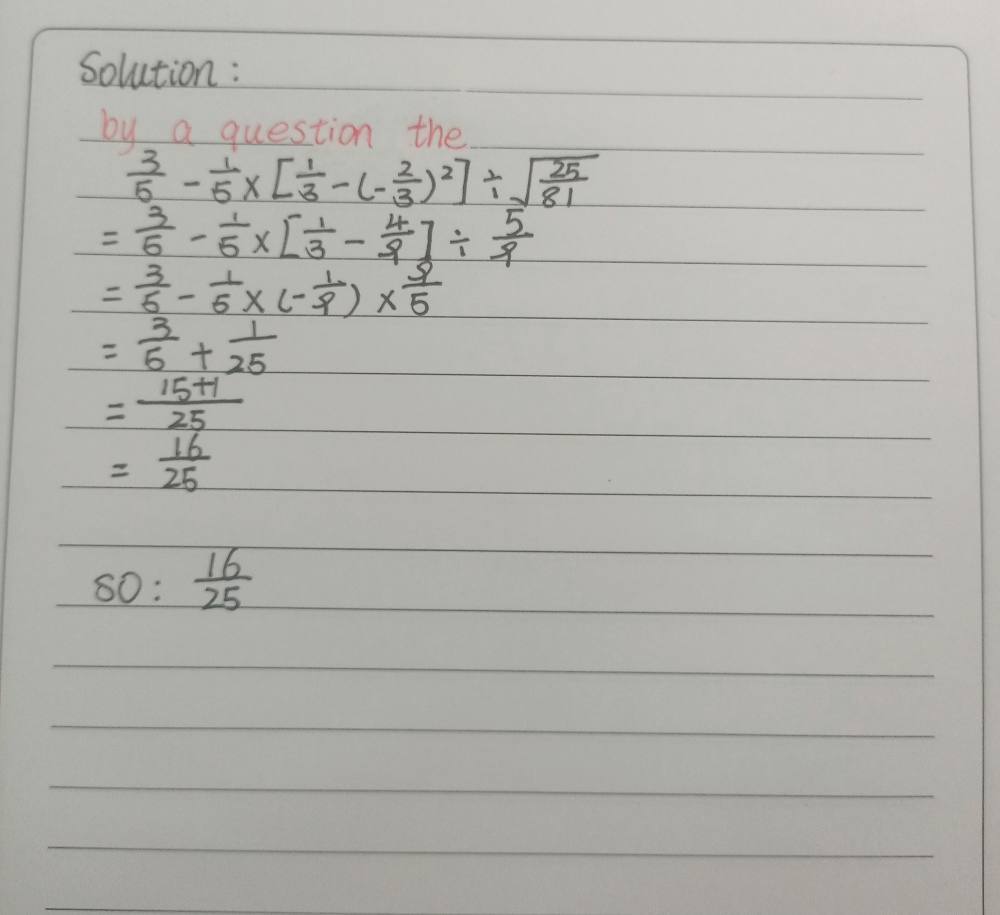 Solution:
by a question the
3/5 - 1/5 × [1/3 - (-2/3)²] ÷ √(25/81)
= 3/5 - 1/5 × [1/3 - 4/9] ÷ 5/9
= 3/5 - 1/5 × (-1/9) × 9/5
= 3/5 + 1/25
= (15+1)/25
= 16/25
SO: 16/25